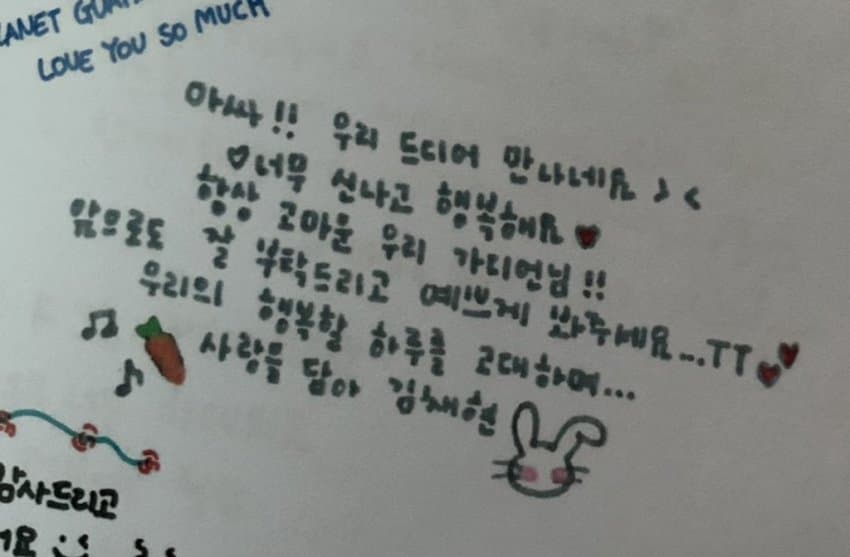 LOVE YOU SO MUCH
아싸!! 우리 드디어 만나네요 > <
♡너무 신나고 행복해요♥
항상 고마운 우리 가디언님!!
앞으로도 잘 부탁드리고 예쁘게 봐주세요...TT♥♥
우리의 행복할 하루를 고대하며...
사랑을 담아 김채현
감사드리고